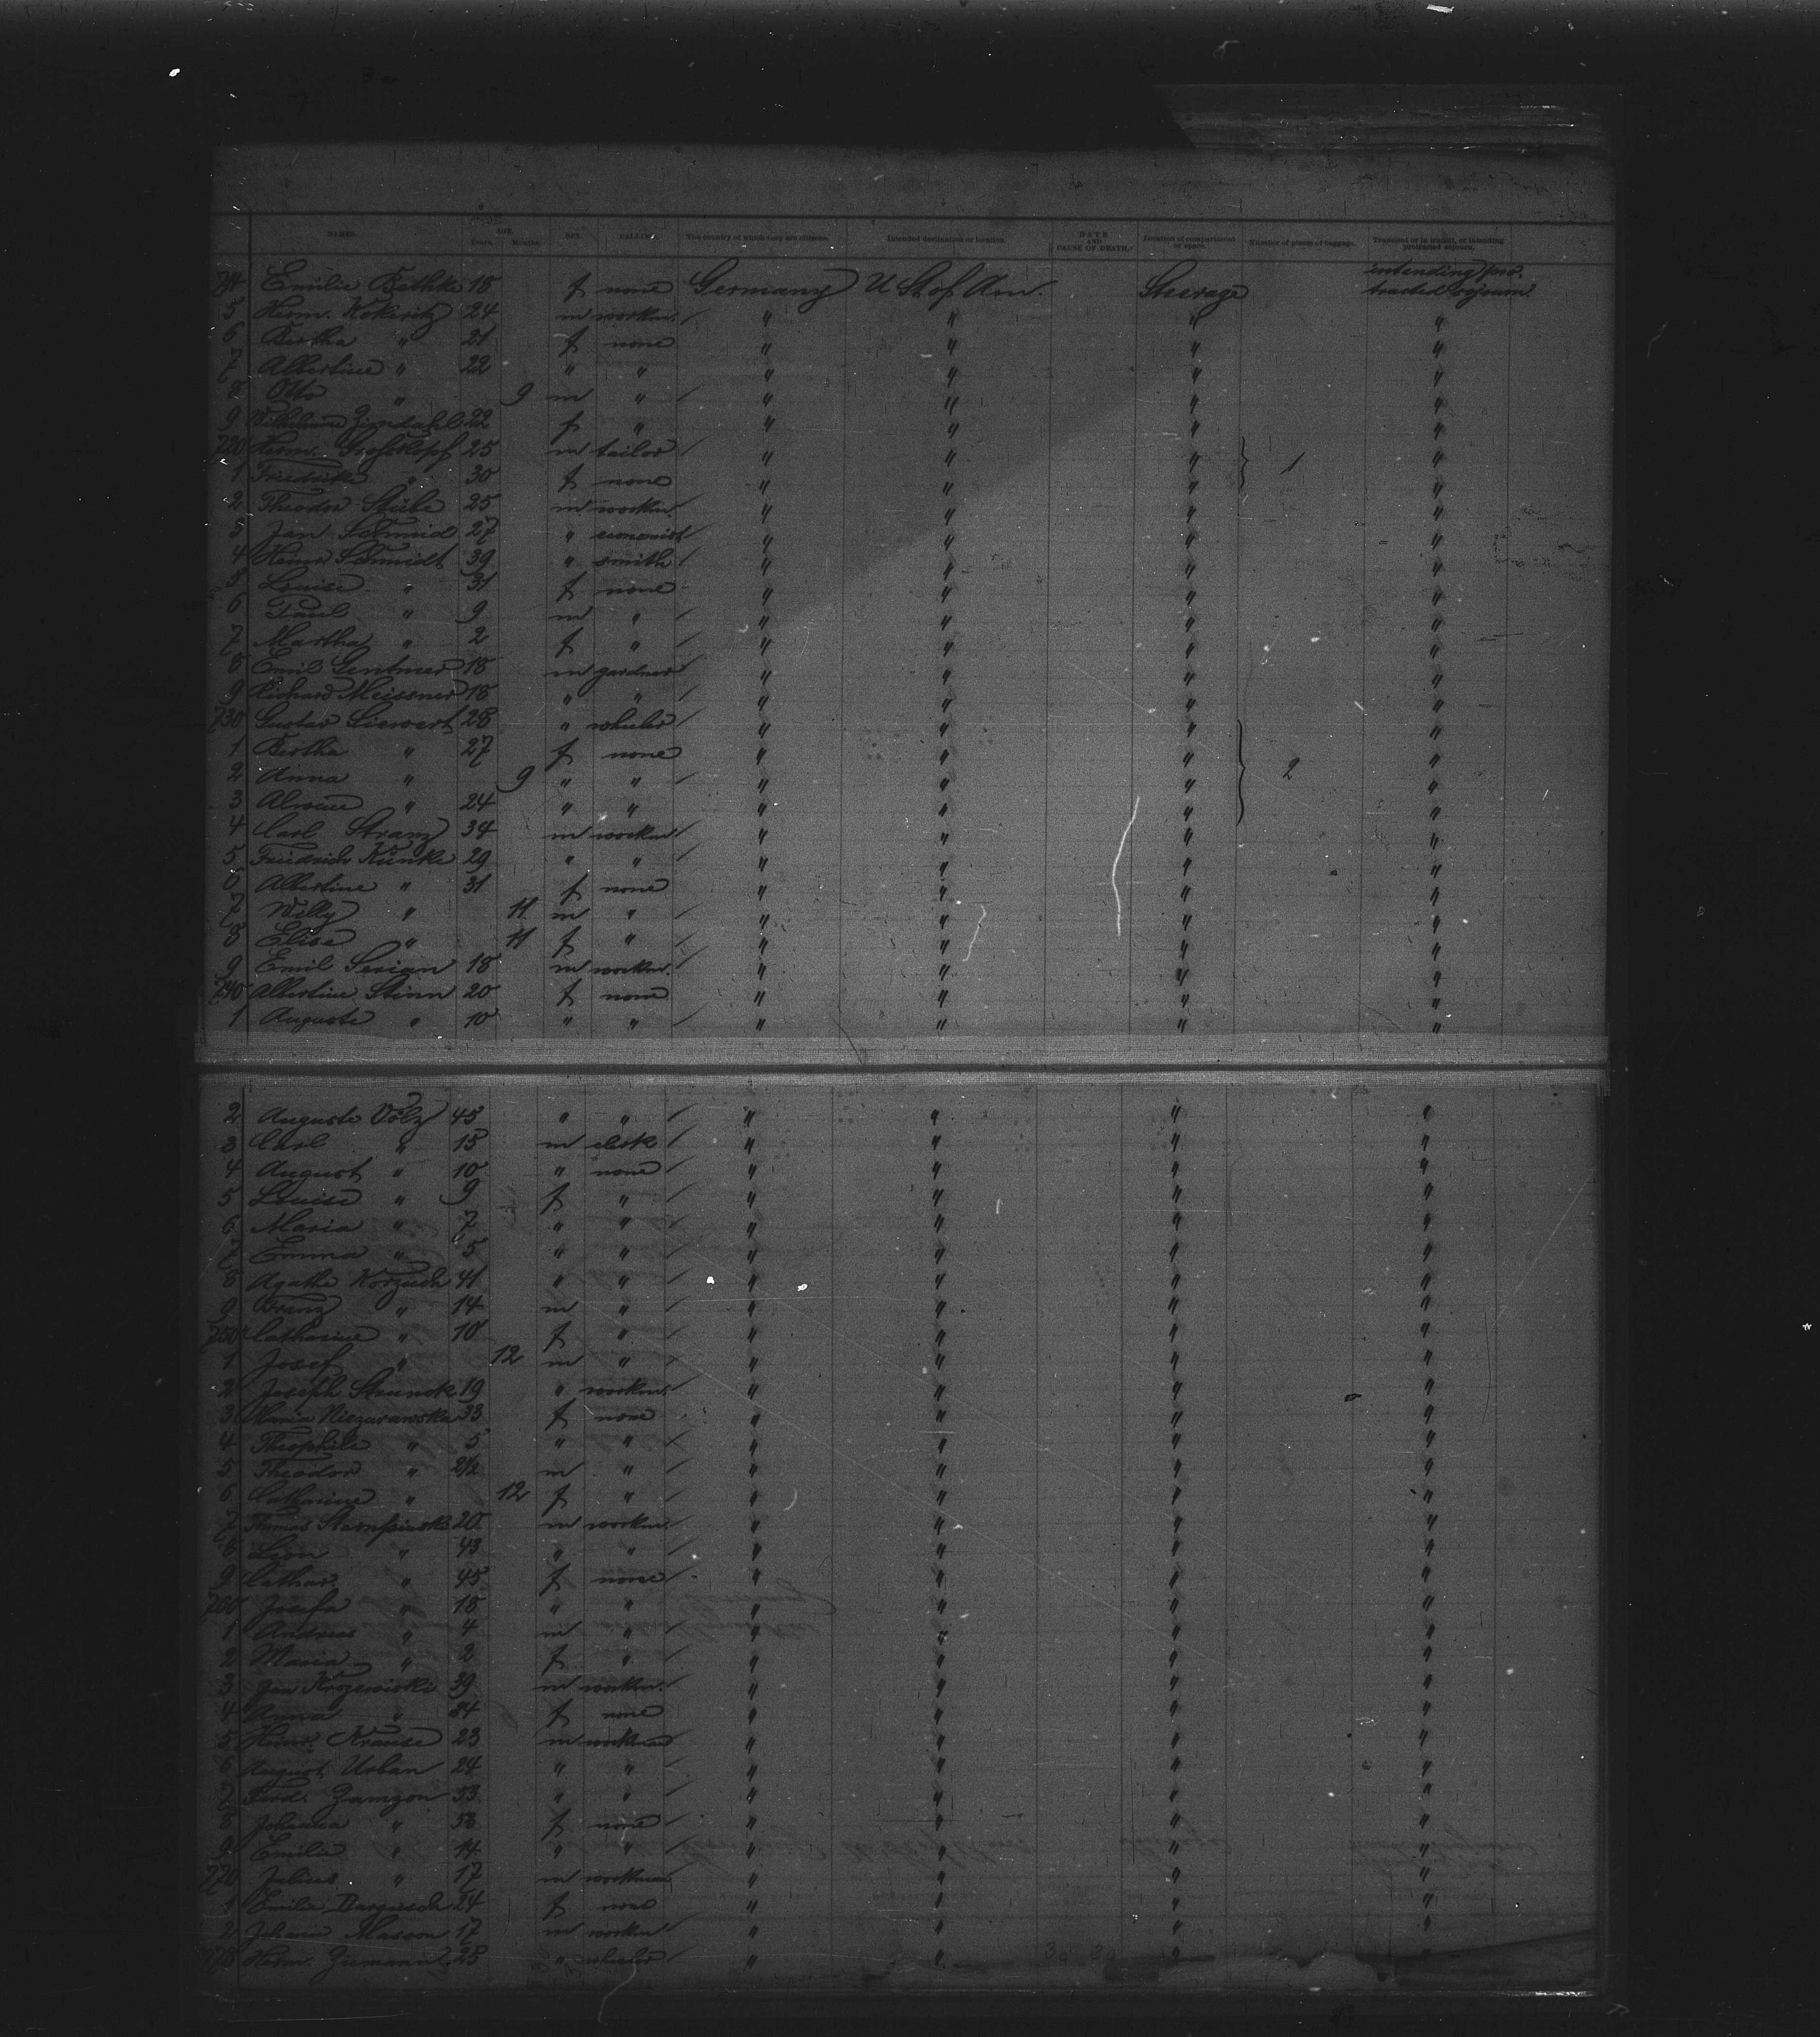 NAMES. AGE. Years. Months. SEX. CALLING. The country of which they are citizens. Intended destination or location. DATE AND CAUSE OF DEATH. Location of compartment or space. Number of pieces of baggage. Transient or in transit, or intending protracted sojourn.
714 Emilie Bethke 18 f none Germany U St. of Am. Steerage intending protracted sojourn.
5 Herm. Kokeritz 24 m workm. " " " "
6 Bertha " 21 f none " " " "
7 Albertine " 22 " " " " " "
8 Otto " 9 m " " " " "
9 Wilhelmine Zimdahl 22 f " " " " "
720 Herm. Grosskopf 25 m tailor " " " 1 "
1 Friedrike " 30 f none " " " "
2 Theodor Stübe 25 m workm. " " " "
3 Jan Schmid 27 " economist " " " "
4 Heinr. Schmidt 39 " smith " " " "
5 Louise " 31 f none " " " "
6 Paul " 9 m " " " " "
7 Martha " 2 f " " " " "
8 Emil Gentmer 18 m gardner " " " "
9 Richard Meissner 18 " " " " " "
730 Gustav Siewert 28 " wheeler " " " "
1 Bertha " 27 f none " " " "
2 Anna " 9 " " " " " 2 "
3 Alwine " 24 " " " " " "
4 Carl Stranz 34 m workm " " " "
5 Friedrich Künke 29 " " " " " "
6 Albertine " 31 f none " " " "
7 Willy " 11 m " " " " "
8 Elise " 11 f " " " " "
9 Emil Serian 18 m workm. " " " "
740 Albertine Stinn 20 f none " " " "
1 Auguste " 10 " " " " " "
2 Auguste Völz 45 " " " " " "
3 Carl " 15 m clerk " " " "
4 August " 10 " none " " " "
5 Louise " 9 f " " " " "
6 Maria " 7 " " " " " "
7 Emma " 5 " " " " " "
8 Agathe Korzuch 41 " " " " " "
9 Franz " 14 m " " " " "
750 Catharine " 10 f " " " " "
1 Josef " 12 m " " " " "
2 Joseph Strunck 19 " workm. " " " "
3 Maria Niezurawska 33 f none " " " "
4 Theophile " 5 " " " " " "
5 Theodor " 2½ m " " " " "
6 Catharine " 12 f " " " " "
7 Thomas 20 m workm. " " " "
8 Leon " 43 " " " " " "
9 Cathar. " 45 f none " " " "
760 Josefa " 18 " " " " " "
1 Andreas " 4 m " " " " "
2 Maria " 2 f " " " " "
3 Jan Krozewiski 39 m workm. " " " "
4 Anna " 34 f none " " " "
5 Heinr. Krause 23 m workman " " " "
6 August Urban 24 " " " " " "
7 Ferd. Zamzon 53 " " " " " "
8 Johanna " 58 f none " " " "
9 Emilie " 14 " " " " " "
770 Julius " 17 m workman " " " "
1 Emilie 24 f none " " " "
2 Johann Masson 17 m workm " " " "
773 Herm. Ziemann 28 " wheeler " " "